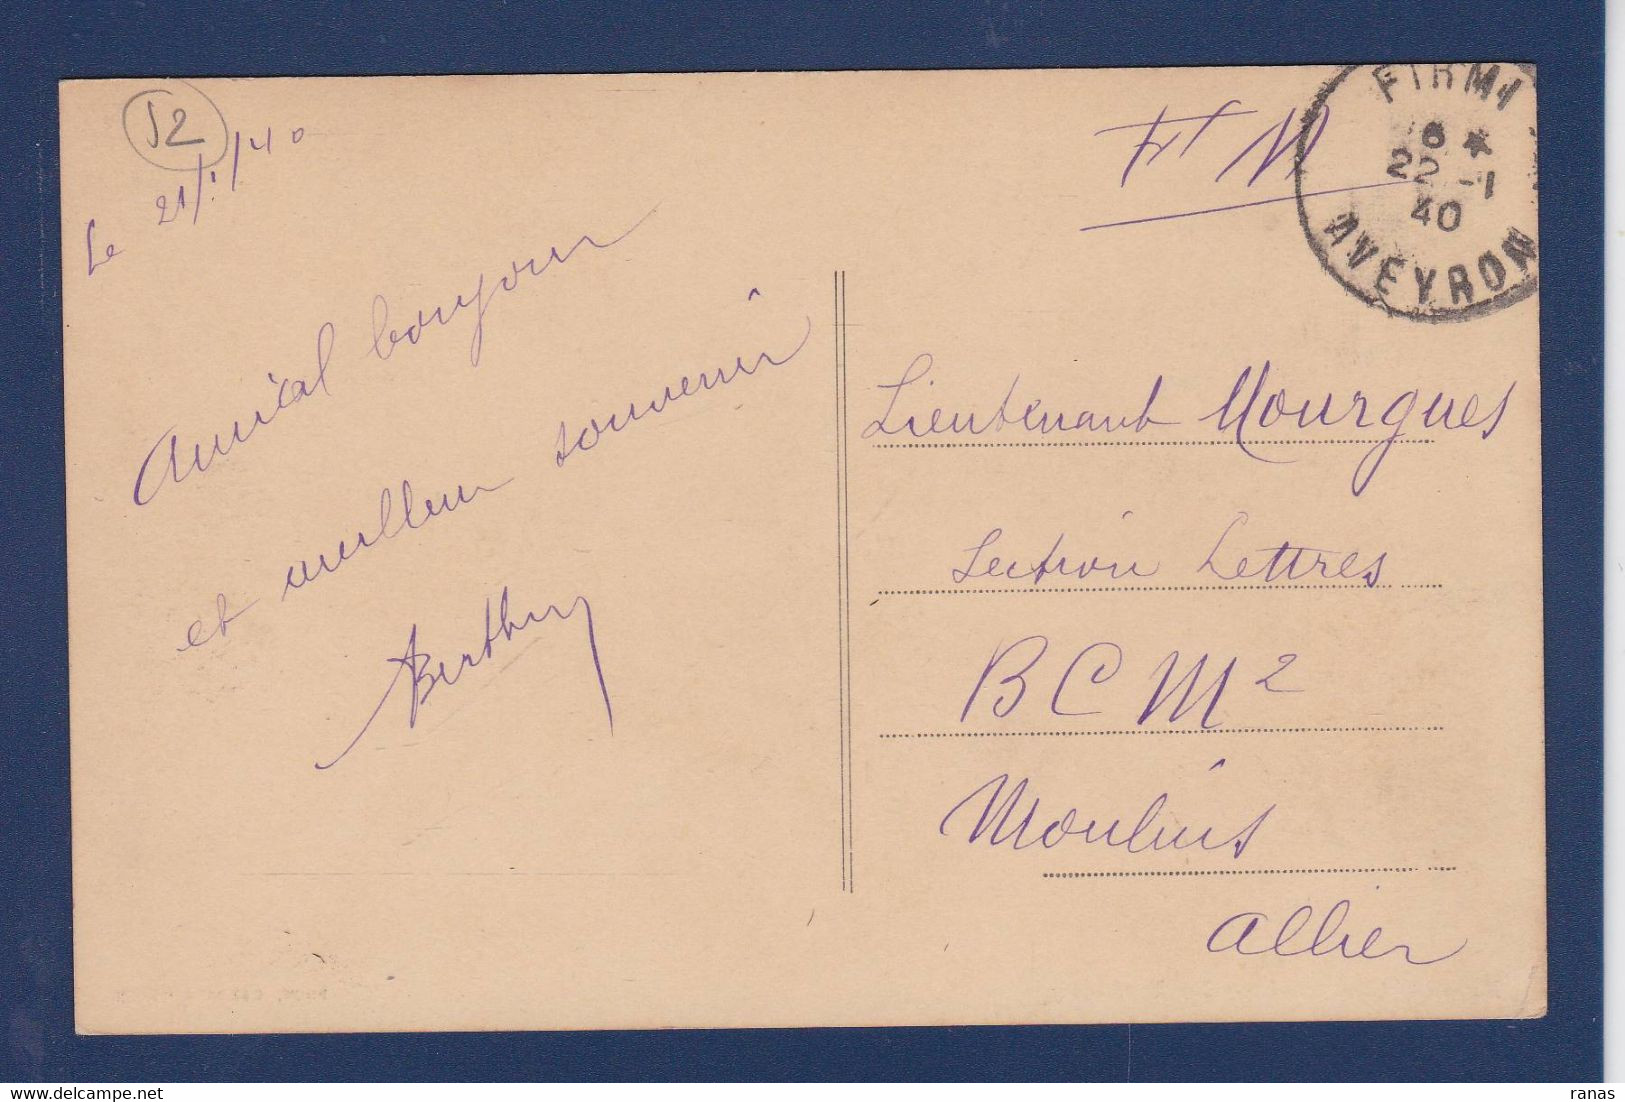 12
Le 21/1/40
Amical bonjour
et meilleur souvenir
Berthuy
Ft M
FIRMI
6 *
22 -1
40
AVEYRON
Lieutenant Mourgues
Section Lettres
B C M 2
Moulins
Allier
ranas